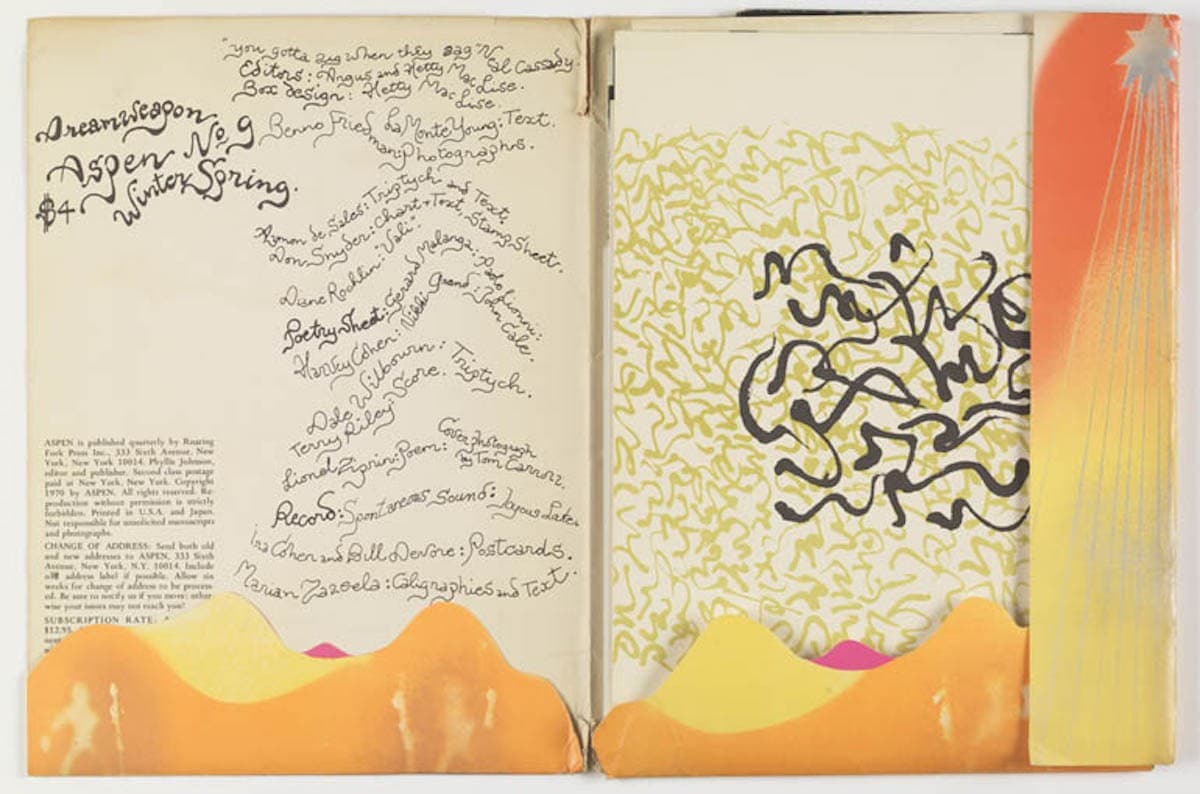 "you gotta zag when they zag" Nal Cassady.
Editors: Angus and Hetty MacLise.
Box design: Hetty MacLise.
Dreamweapon
Aspen No. 9
Winter Spring.
$4
LaMonte Young: Text.
Benno Friedman: Photographs.
Aymon de Sales: Triptych and Text.
Don Snyder: Chart + Text, Stamp Sheet.
Diane Rochlin: "Vali."
Poetry Sheet: Gerard Malanga:
Harvey Cohen: Nikki Grand: John Cale.
Dale Wilbourn: Triptych.
Terry Riley: Score.
Lionel Ziprin: Poem: Cover photograph
by Tom
Record: Spontaneous Sound:
Ira Cohen and Bill Devore: Postcards.
Marian Zazeela: Caligraphies and Text.
ASPEN is published quarterly by Roaring
Fork Press Inc., 333 Sixth Avenue, New
York, New York 10014. Phyllis Johnson,
editor and publisher. Second class postage
paid at New York, New York. Copyright
1970 by ASPEN. All rights reserved. Re-
production without permission is strictly
forbidden. Printed in U.S.A. and Japan.
Not responsible for unsolicited manuscripts
and photographs.
CHANGE OF ADDRESS: Send both old
and new addresses to ASPEN, 333 Sixth
Avenue, New York, N.Y. 10014. Include
old address label if possible. Allow six
weeks for change of address to be process-
ed. Be sure to notify us if you move: other-
wise your issues may not reach you!
SUBSCRIPTION RATE:
$12.95